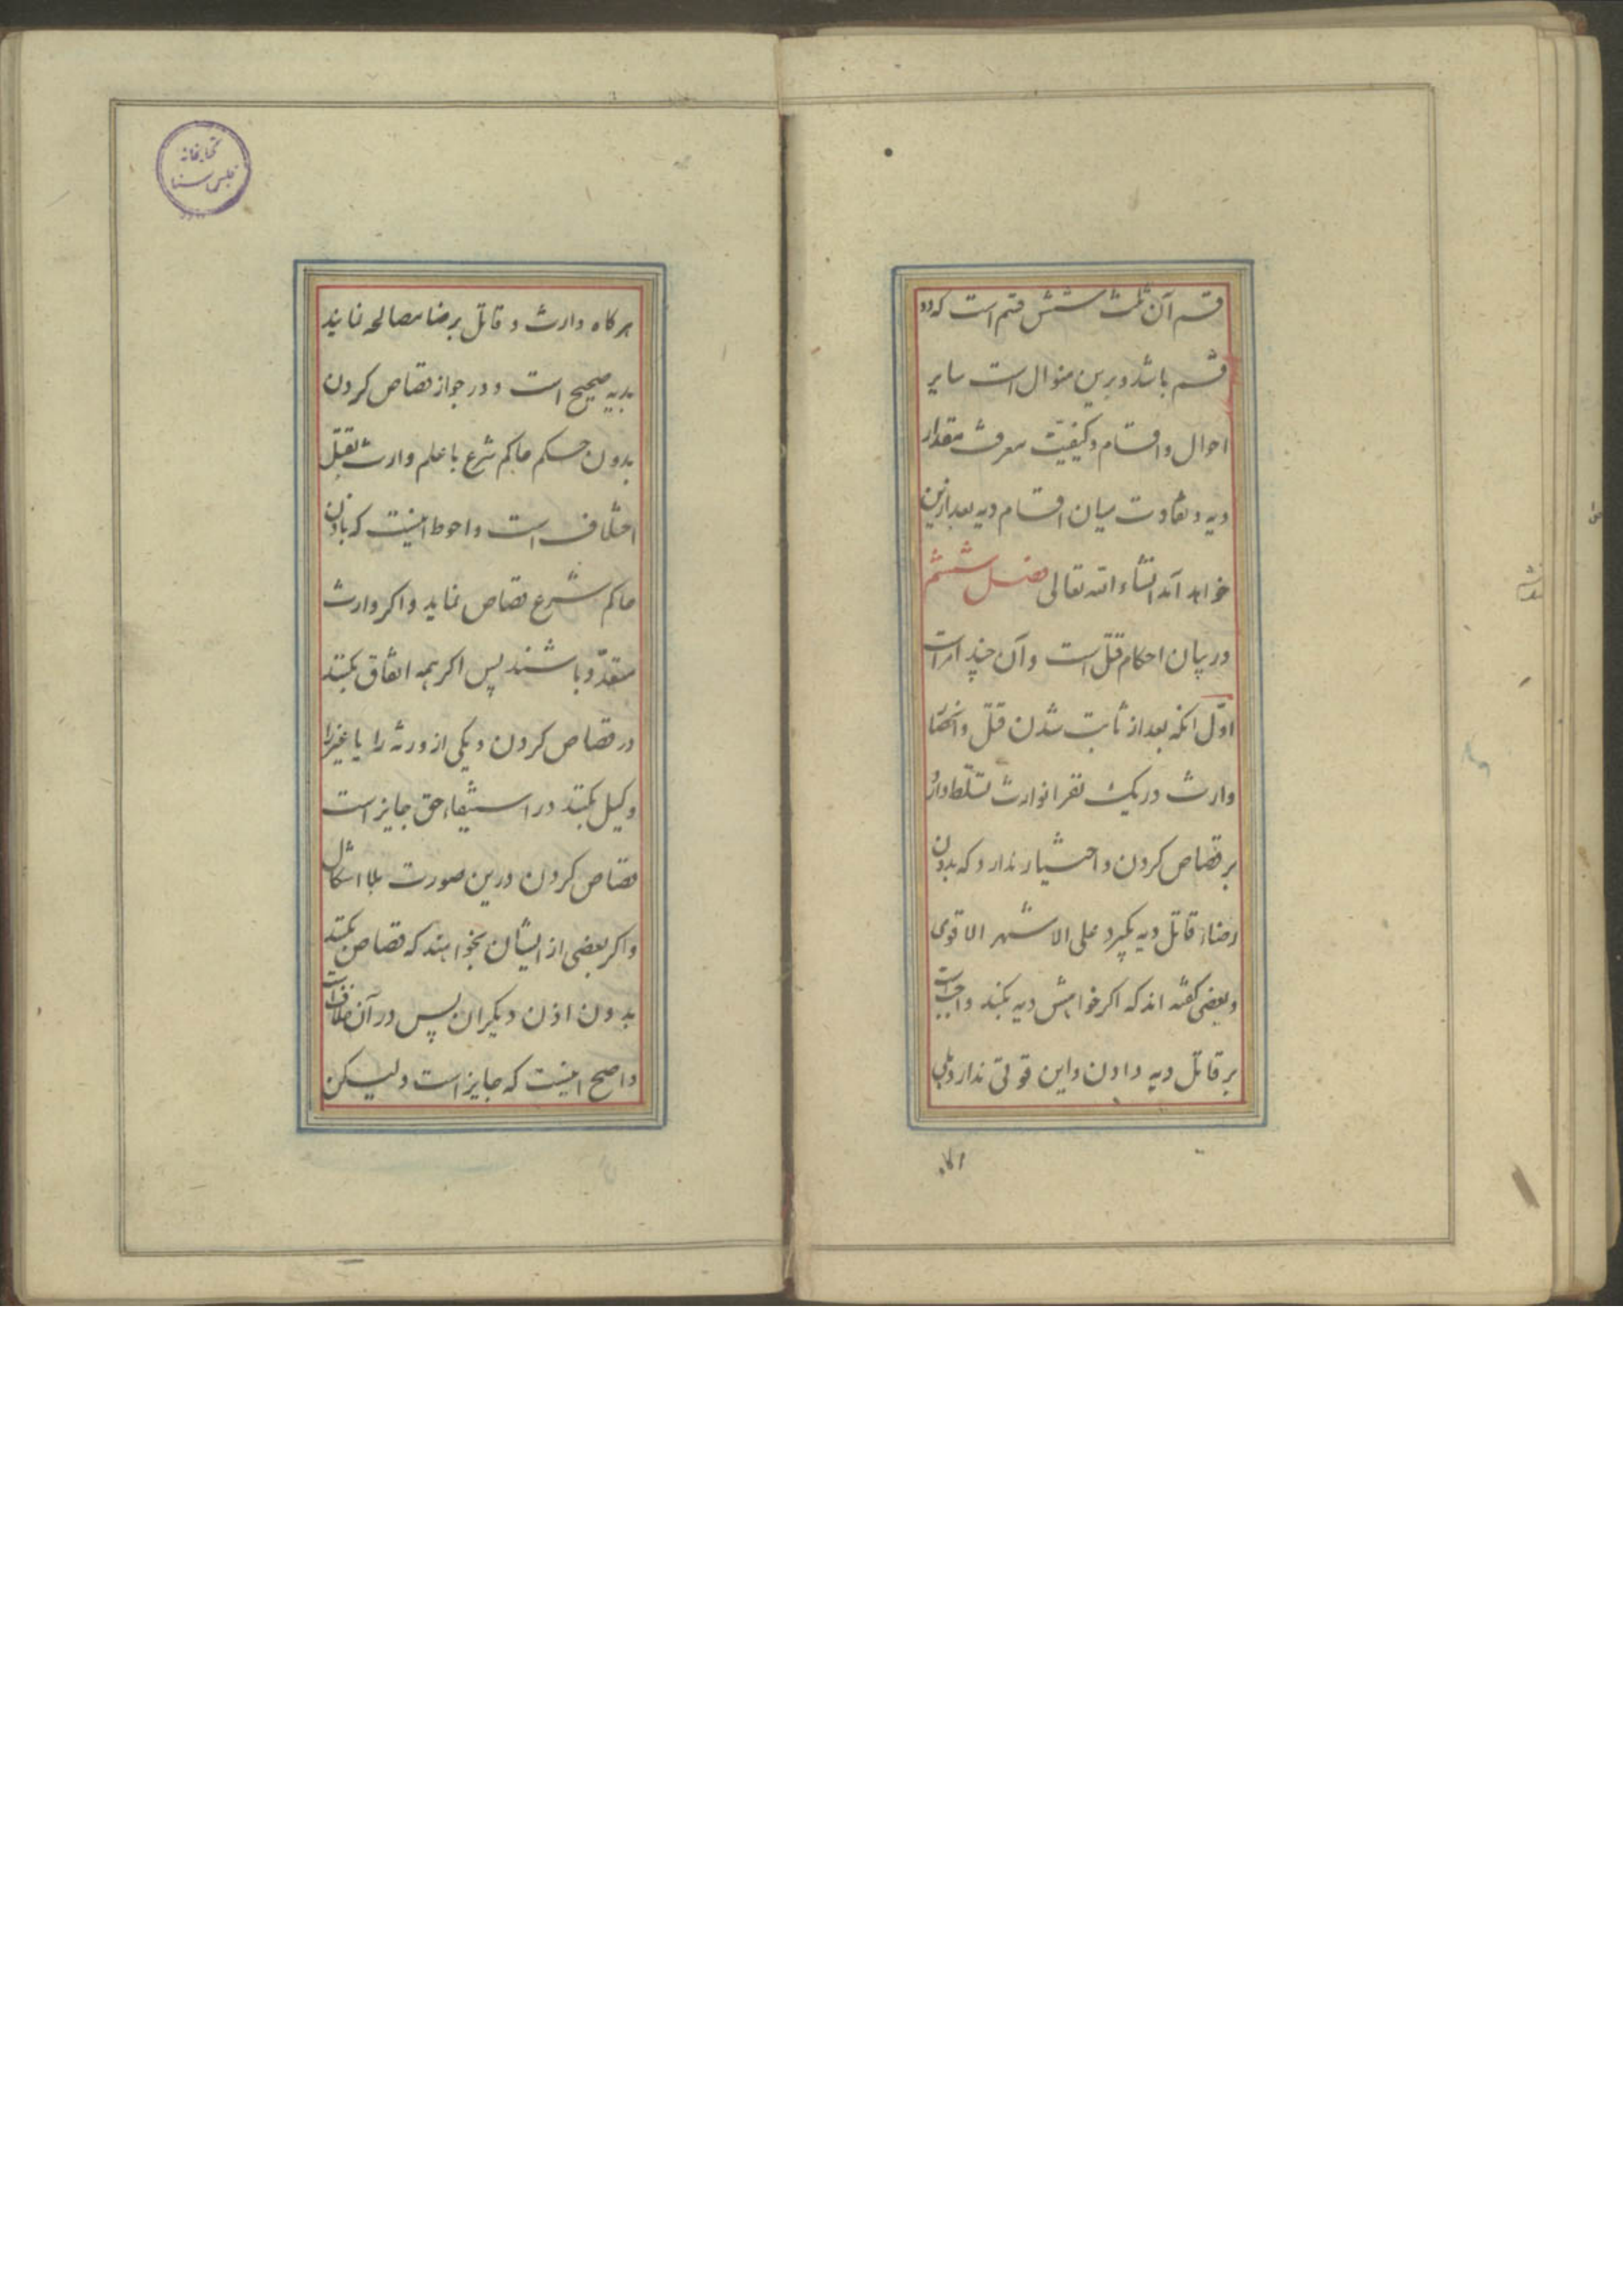 قسم آن ثلث شش قسم است که دو
قسم باشد و برین منوال است سایر
احوال و اقسام و کیفیّت معرفت مقدار
دیه و تفاوت میان اقسام دیه بعد ازین
خواهد آمد انشاء الله تعالی فصل ششم
در بیان احکام قتل است و آن چند امر است
اوّل انکه بعد از ثابت شدن قتل و انحصار
وارث در یک نفر انوارث تسلّط دارد
بر قصاص کردن و اختیار ندارد که بدون
رضا از قاتل دیه بکیرد علی الاشهر الاقوی
و بعضی کفته اند که اکر خواهش دیه بکند واجب است
بر قاتل دیه دادن و این قوتی ندارد بلی
هرکاه وارث و قاتل برضا مصالحه نمایند
بدیه صحیح است و در جواز قصاص کردن
بدون حکم حاکم شرع با علم وارث بقتل
اختلاف است و احوط اینست که باذن
حاکم شرع قصاص نماید و اکر وارث
متعدّد باشند پس اکر همه اتفاق بکنند
در قصاص کردن و یکی از ورثه را یا غیر را
وکیل بکنند در استیفاء حق جایز است
قصاص کردن درین صورت بلا اشکال
و اکر بعضی از ایشان بخواهند که قصاص بکنند
بدون اذن دیکران پس در آن خلاف است
و اصح اینست که جایز است و لیکن
کتابخانه
مجلس سنا